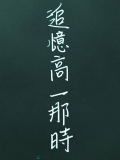 追憶高一那時